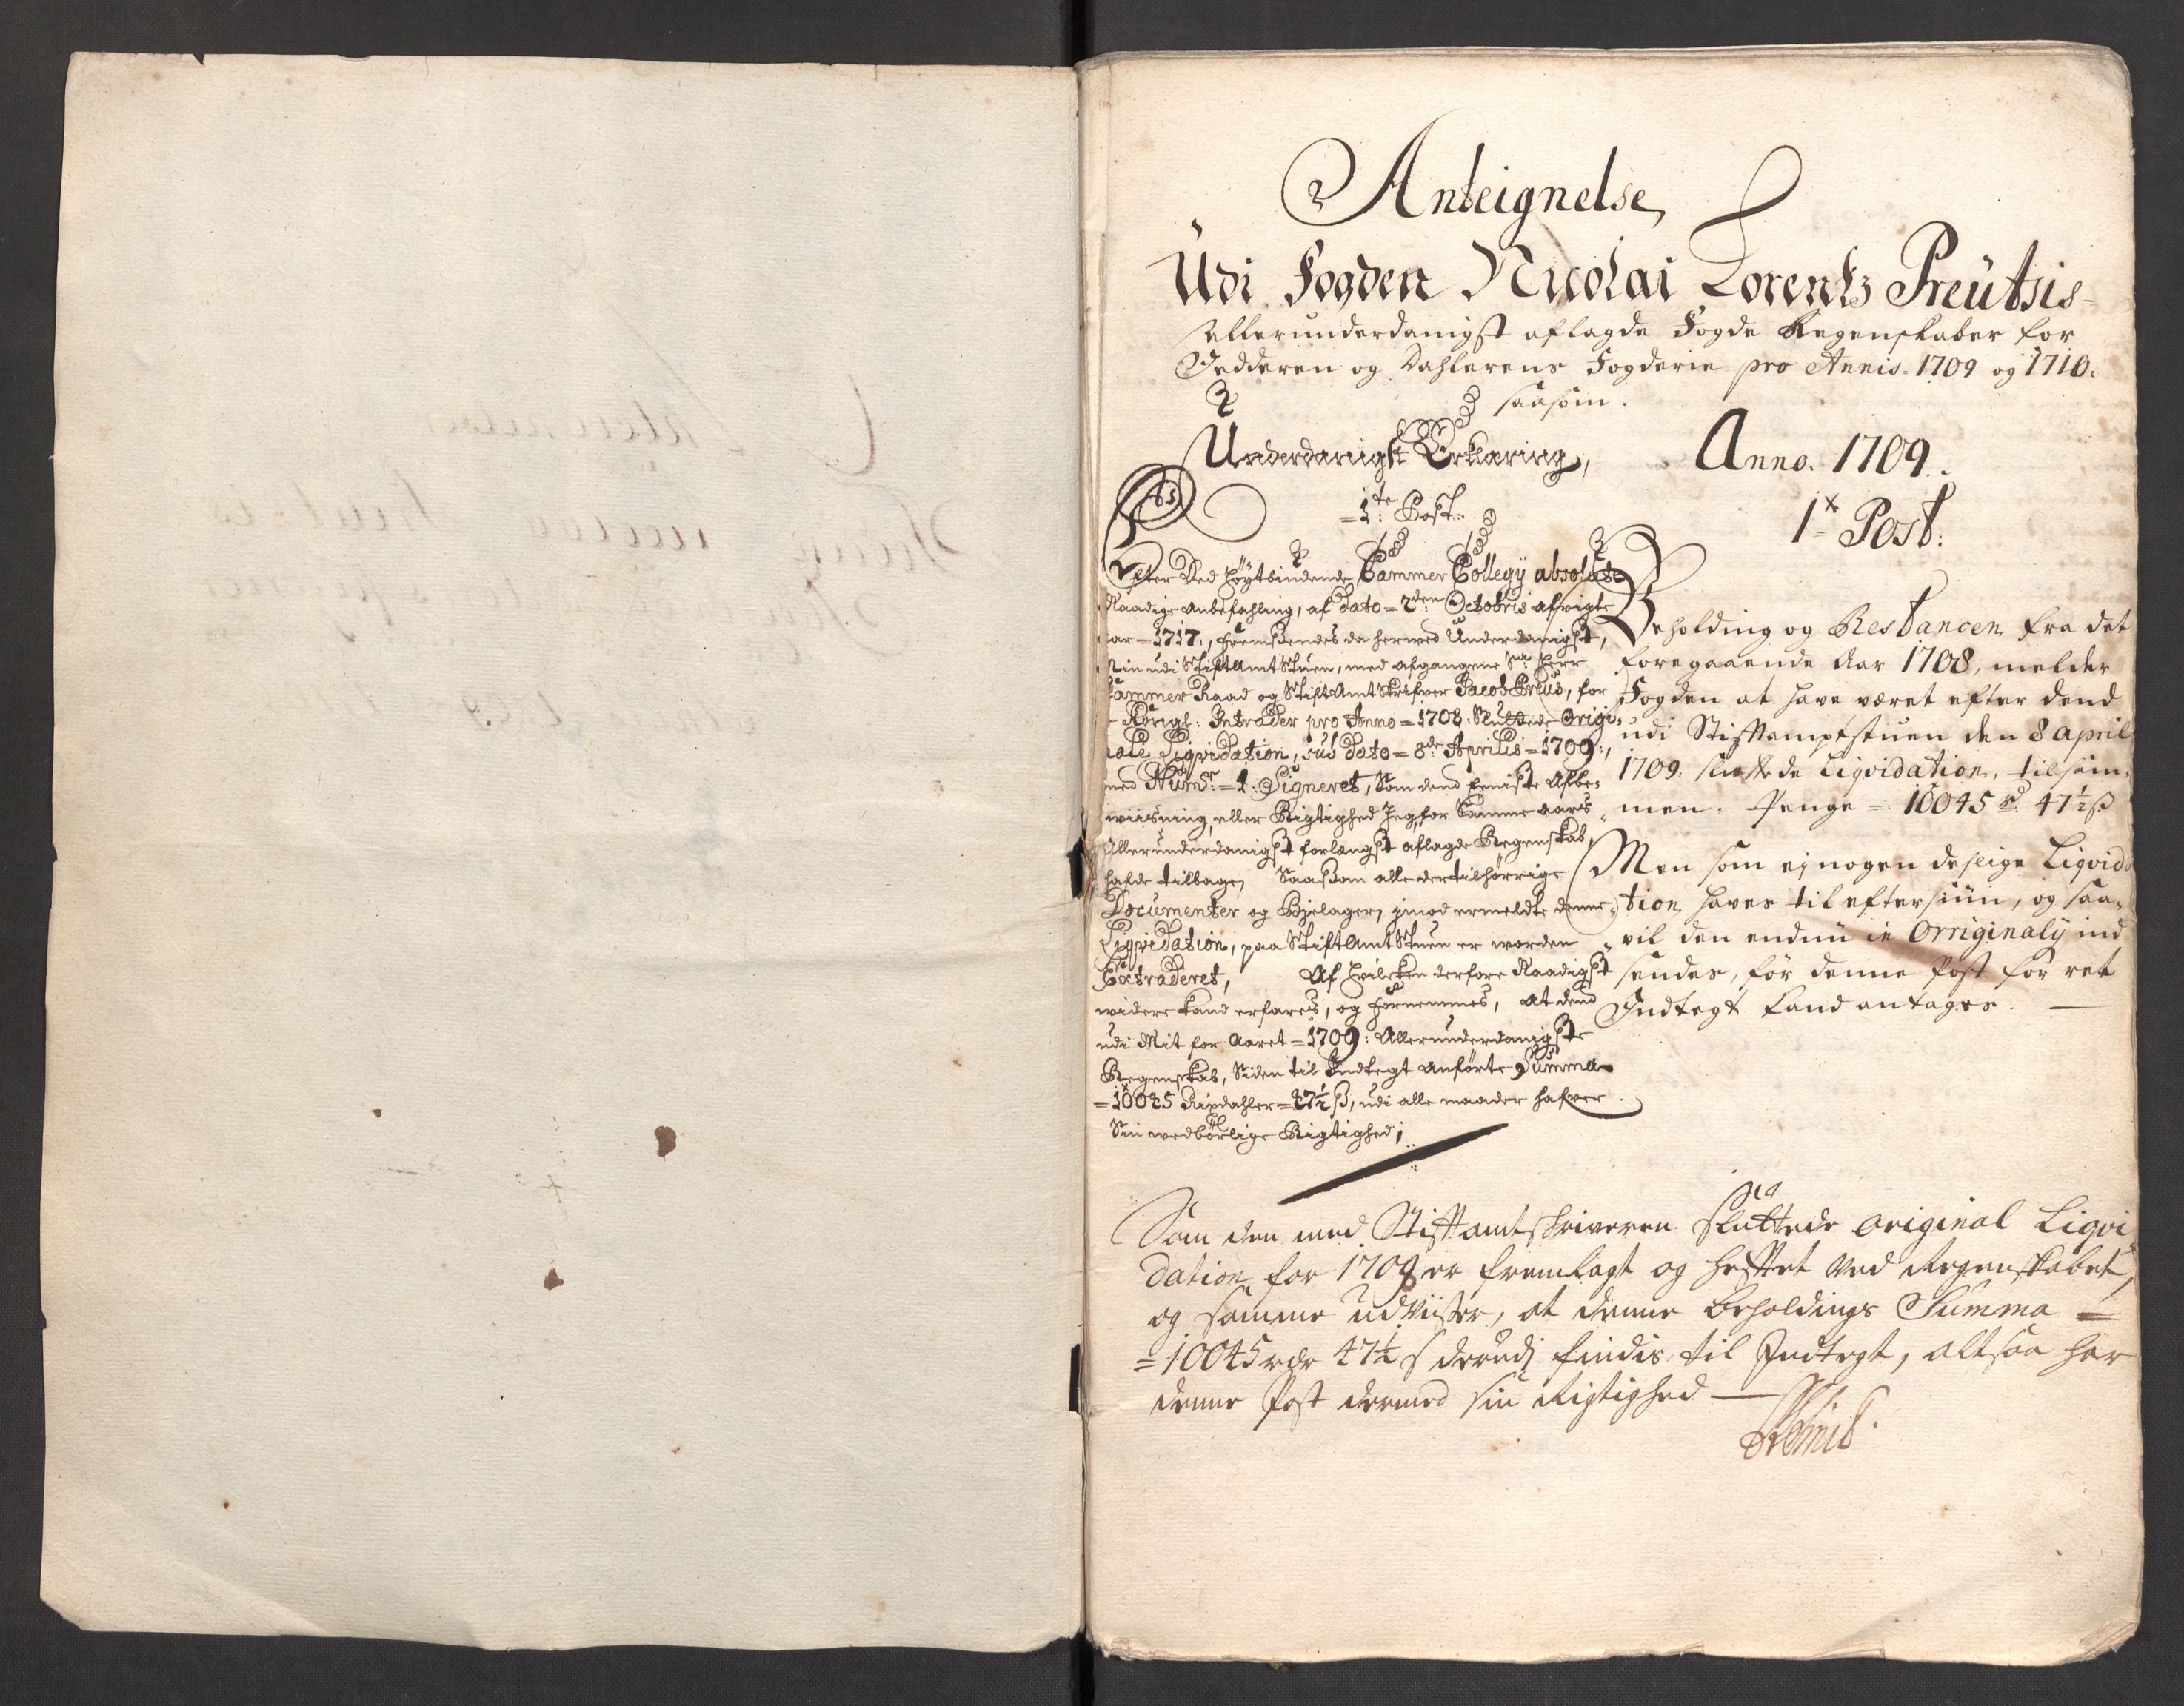 Anteignelse,
Udi Fogden Nicolai Lorentz Preütsis
allerunderdanigst aflagde Fogde Regenskaber for
Jedderen og Dahlerens Fogderie pro Annis 1709 og 1710.
saasom.
Underdanigst Erklæring,
1te Post:
Efter Ded höytbindende Cammer Collegij absolute
Naadige anbefahling, af dato = 2den Octobris afvigte
aar = 1717, fremsendes da hermed Underdanigst,
Min udi StiftAmtStuen, med afgangene Sr Herr
Cammer Raad og StiftAmtSkrifver Jacob Preüs, for
Kongl: Intrader pro Anno = 1708. Sluttede Origi-
nale Liqvidation, sub dato = 8de Aprilis = 1709:,
med Numr = 1. Signeret, Som dend Eeniste Afbe-
wiisning, eller Rigtighed Jeg for Samme aars
Allerunderdanigst forlængst aflagde Regenskab,
hafde tilbage, Saasom alle dertilhørrige
Documenter og Bielager, imod ermeldte denne
Liqvidation, paa StiftAmtStuen er worden
Extraderet, Af hvilcken derfore Naadigst
widere kand erfares, og fornemmes, at dend
udi Mit for Aaret = 1709: Allerunderdanigste
Regenskab, Siden til Indtegt anførte Summa
= 10045 Rixdahler = 47½ ß, udi alle maader hafver
Sin wedbörlige Rigtighed;
Anno. 1709.
1x Post:
Beholding og Restancen fra det
foregaaende Aar 1708, melder
Fogden at have været efter dend
udi Stiftampstuen den 8 april
1709. sluttede Liqvidation, tilsam-
men. Penge = 10045 rd. 47½ ß
Men som ej nogen deslige Liqvida
tion haves til eftersiün, og saa-
vil den endnü in Orriginaly ind
sendes, før denne Post for ret
Indtegt kand antages.
Som den med Stiftamtskriveren Sluttede original Liqvi-
dation for 1709 er fremlagt og hefftet ved Regenskabet,
og samme udviiser, at denne Beholdings Summa =
= 10045 rdr 47½ s derudj findis til Indtegt, altsaa har
denne Post dermed sin Rigtighed